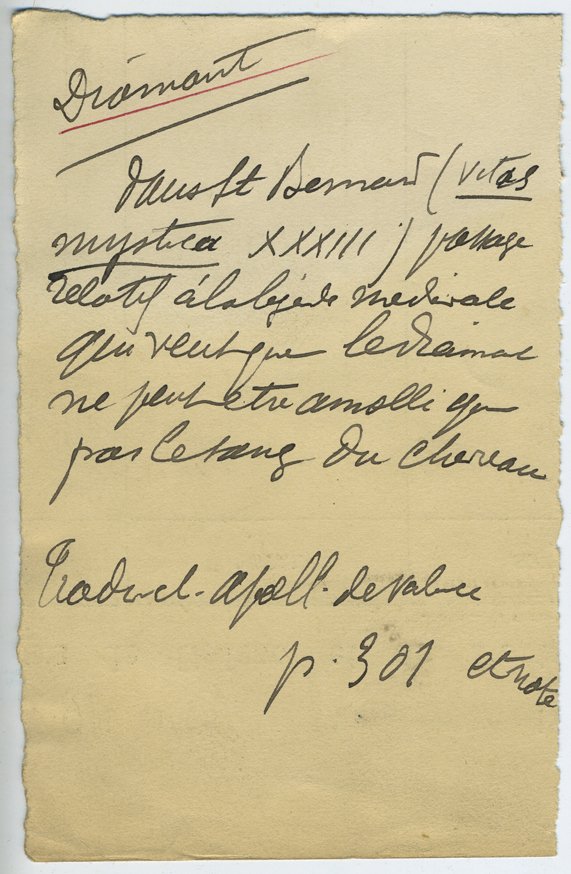 Diamant
Dans St Bernard (vitas
mystica XXXIII) passage
relatif à la légende médiévale
qui veut que le diamant
ne peut etre amolli que
par le sang du chevreau
Traduct. Apoll. de Valence
p. 301 et note